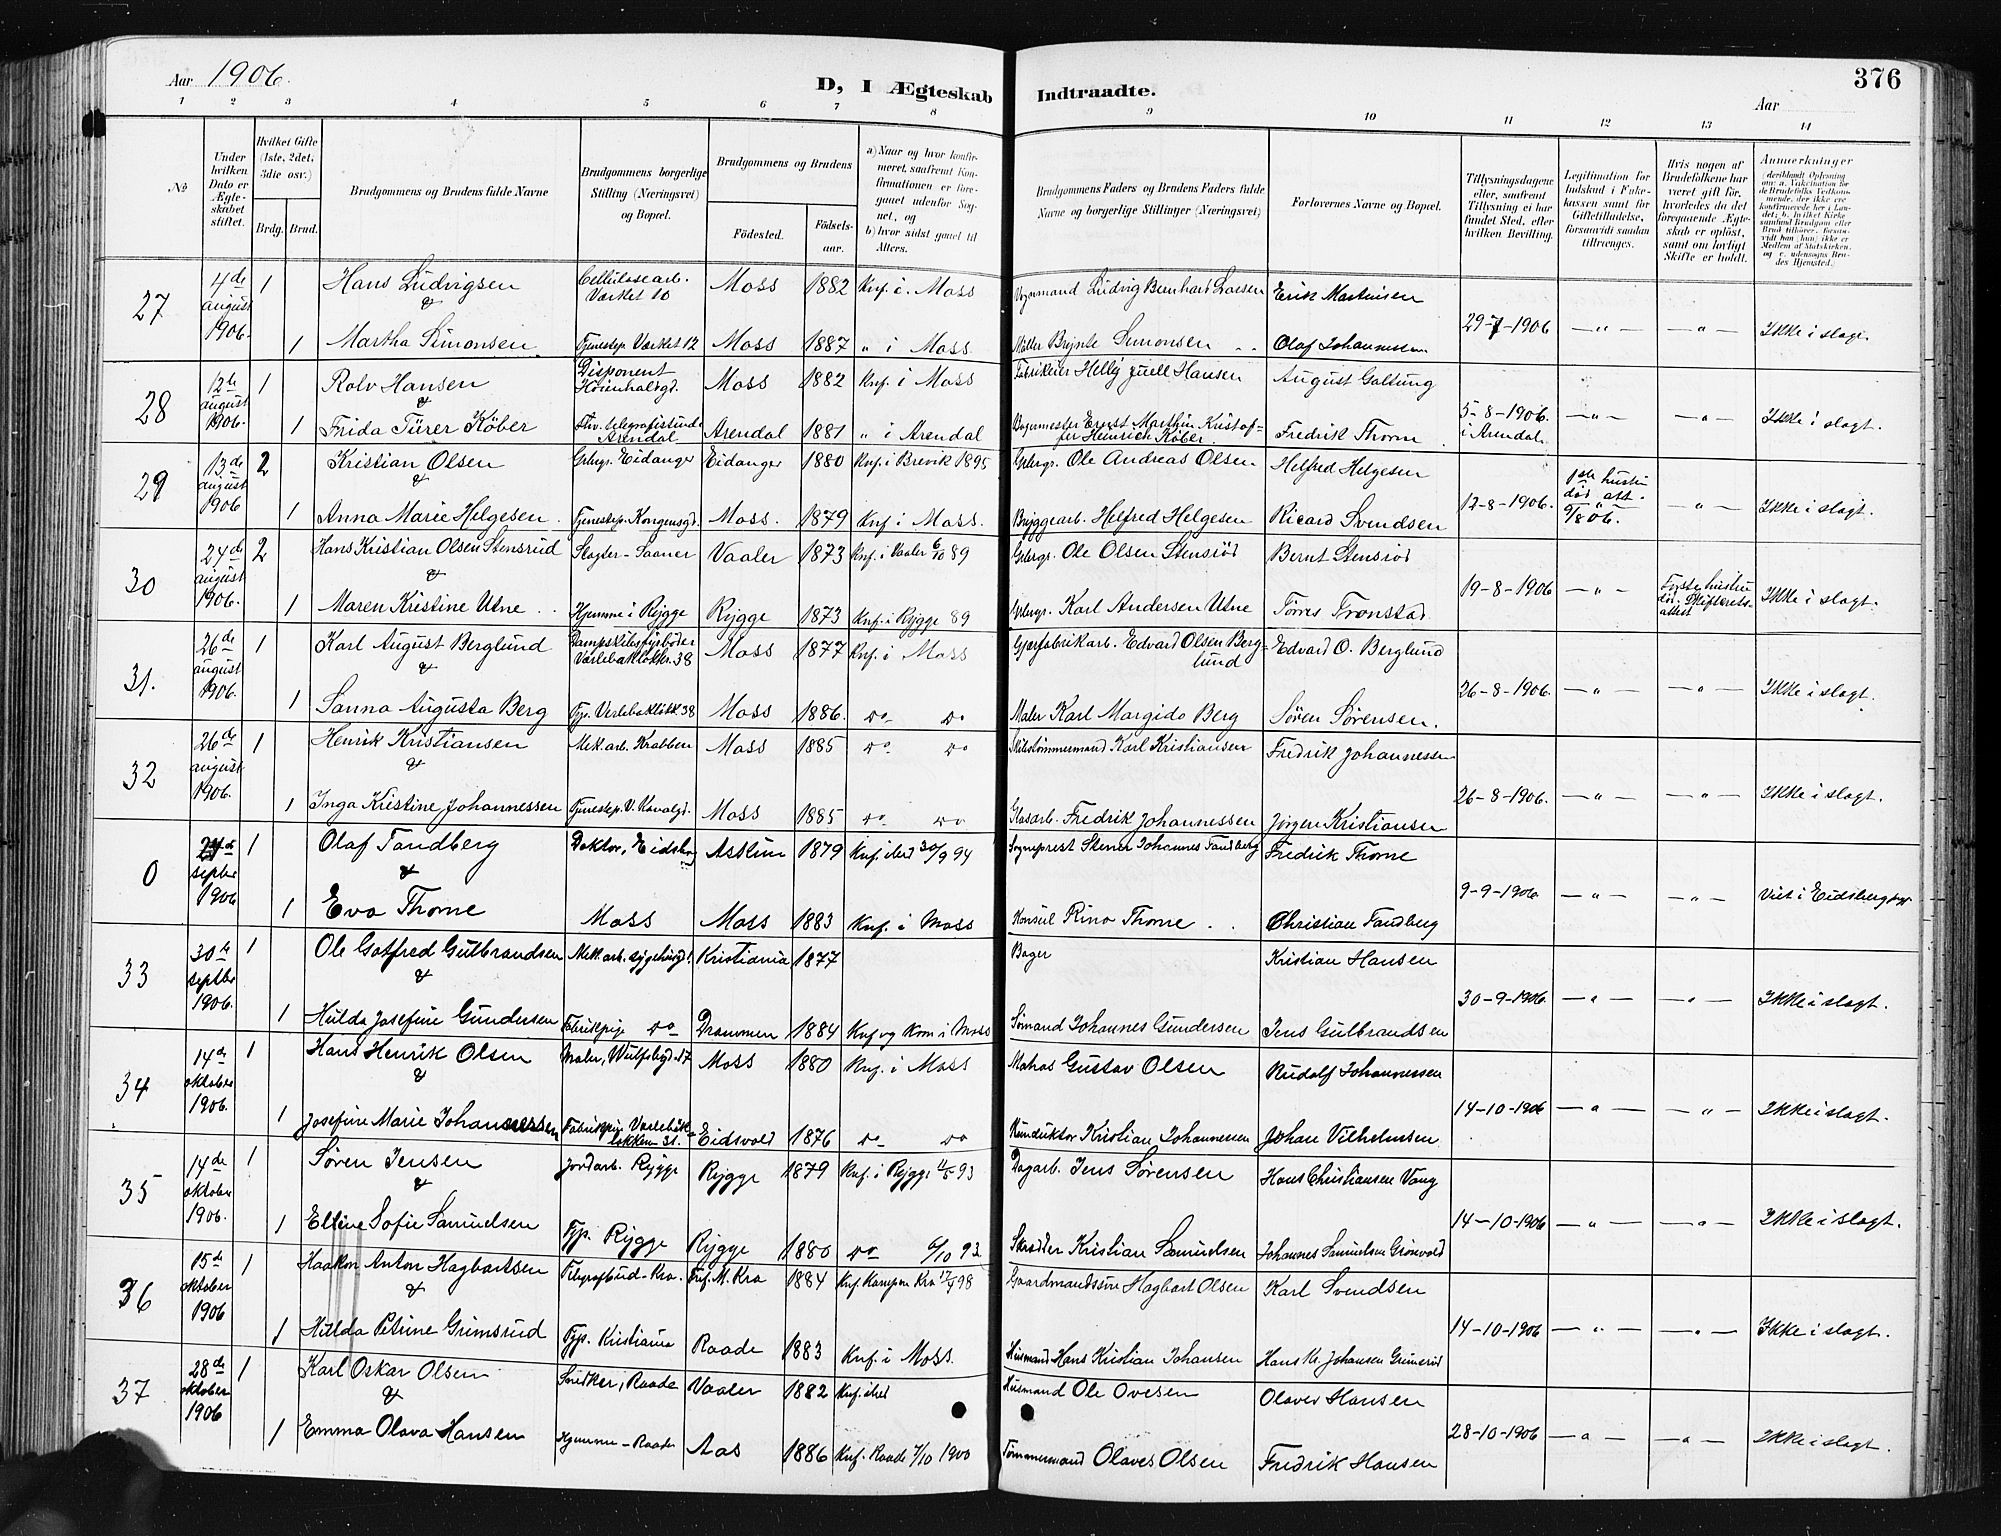 Aar 1906.
D, I Ægteskab Indtraadte.
Aar
376
1 2 3 4 5 6 7 8 9 10 11 12 13 14
No
Under hvilken Dato er Ægteskabet stiftet.
Hvilket Gifte (1ste, 2det, 3die osv.)
Brdg. Brud.
Brudgommens og Brudens fulde Navne
Brudgommens borgerlige Stilling (Næringsvei) og Bopæl.
Brudgommens og Brudens
Fødested. Fødselsaar.
a) Naar og hvor konfirmeret, saafremt Konfirmationen er foregaaet udenfor Sognet, og b) hvor sidst gaaet til Alters.
Brudgommens Faders og Brudens Faders fulde Navne og borgerlige Stillinger (Næringsvei)
Forlovernes Navne og Bopæl.
Tillysningsdagene eller, saafremt Tillysning ei har fundet Sted, efter hvilken Bevilling.
Legitimation for Indskud i Enkekassen samt for Giftetilladelse, forsaavidt saadan tiltrænges.
Hvis nogen af Brudefolkene har været gift før, hvorledes da det foregaaende Ægteskab er opløst, samt om lovligt Skifte er holdt.
Anmerkninger
27 4de august 1906. 1 Hans Ludvigsen Cellulosearb. Værket 10 Moss 1882 Knf. i. Moss Vognmand Ludvig Bernhard Larsen Erik Martinsen
&
1 Martha Simonsen Tjenestep. Værket 12 Moss 1887 " i Moss Møller Brynte Simonsen Olaf Johannessen 29-7-1906 — " — — " — Ikke i slægt.
28 12te august 1906. 1 Rolv Hansen Disponent Høienhaldgd. Moss 1882 Knf. i Moss Fabrikeier Helly Juell Hansen August Galtung
&
1 Frida Türer Köber Arendal Arendal 1881 " i Arendal Bogermester Ernst Marthin Kristoffer Heinrich Köber Fredrik Thorne 5-8-1906. i Arendal. — " — — " — Ikke i slægt.
29 13de august 1906 2 Kristian Olsen Gbrgr. Eidanger Eidanger 1880 Knf. i Brevik 1895 Gbrgr. Ole Andreas Olsen Helfred Helgesen
&
1 Anna Marie Helgesen Tjenestep. Kongensgd. Moss. 1879 Knf. i Moss. Bryggearb. Helfred Helgesen Ricard Svendsen 12-8-1906. 1ste hustru død att. 9/8 06. — " — Ikke i slægt.
30 24de august 1906. 2 Hans Kristian Olsen Stensrud Slagter - Saaner Vaaler 1873 Knf. i Vaaler 6/10 89 Gbrgr. Ole Olsen Stensrød Bernt Stensrød
&
1 Maren Kristine Utne Hjemme i Rygge Rygge 1873 Knf. i Rygge 89 Gbrgr. Karl Andersen Utne Tørres Tronstad 19-8-1906 — " — Første hustru død. Skifterets attest Ikke i slægt.
31. 26de august 1906. 1 Karl August Berglund Dampskibsfyrbøder Varlebakløkk. 38 Moss 1877 Knf. i Moss Gjærfabrikarb. Edvard Olsen Berglund Edvard O. Berglund
&
1 Sanna Augusta Berg Tjp. Verlebakløkk 38 Moss 1886. do do Maler Karl Margido Berg Søren Sørensen. 26-8-1906. — " — — " — Ikke i slægt.
32 26de august 1906. 1 Henrik Kristiansen Mek. arb. Krabben Moss 1885 do do Skibstømmermand Karl Kristiansen Fredrik Johannessen
&
1 Inga Kristine Johannessen Tjenestep. V. Kanalgd. Moss 1885 do do Glasarb. Fredrik Johannessen Jørgen Kristiansen 26-8-1906. — " — — " — Ikke i slægt.
0 septbr 1906 1 Olaf Tandberg Doktor, Eidsberg 1879 Knf. ibid 30/9 94 Sogneprest Stener Johannes Tandberg Fredrik Thorne
&
1 Eva Thorne Moss Moss 1883 Knf. i Moss Konsul Rino Thorne Christian Tandberg 9-9-1906 — " — — " — Viet i Eidsberg
33 30te septbr 1906. 1 Ole Gotfred Gulbrandsen Mek. arb. Sygehusgd. Kristiania 1877 Bager Kristian Hansen
&
1 Hulda Josefine Gundersen Fabrikpige do Drammen 1884 Knf og Kom i Moss Sømand Johannes Gundersen Jens Gulbrandsen 30-9-1906. — " — — " — Ikke i slægt.
34 14de oktober 1906. 1 Hans Henrik Olsen Maler, Wulfsbgd. 17 Moss 1880 Knf. i Moss Matros Gustav Olsen Rudolf Johannessen
&
1 Josefine Marie Johannessen Fabrikpige Varlebakløkken 31. Eidsvold 1876 do do Konduktør Kristian Johannessen Johan Vilhelmsen 14-10-1906 — " — — " — Ikke i slægt.
35 14de oktober 1906. 1 Søren Jensen Jordarb. Rygge Rygge 1879 Knf. i Rygge 93 Dagarb. Jens Sørensen Hans Christiansen Vang
&
1 Elline Sofie Samuelsen Tjp. Rygge Rygge 1880 do 6/10 93 Skrædder Kristian Samuelsen Johannes Samuelsen Grønvold 14-10-1906 — " — — " — Ikke i slægt.
36 15de oktober 1906 1 Haakon Anton Hagbartsen Telegrafbud - Kra. Kra 1884 Knf. Kampen Kra 98 Gaardmandssøn Hagbart Olsen Karl Svendsen
&
1 Hulda Petrine Grimsrud Tjp. Kristiania Raade 1883 Knf. i Moss. Husmand Hans Kristian Johansen Hans Kr. Johansen Grimsrød 14-10-1906 — " — — " — Ikke i slægt.
37 28de oktober 1906 1 Karl Oskar Olsen Snedker, Raade Vaaler 1882 Knf. ibid Husmand Ole Ovesen Olaves Hansen
&
1 Emma Olava Hansen Hjemme - Raade Aas 1886 Knf. Raade 7/10 1900 Tømmermand Olaves Olsen Fredrik Hansen 28-10-1906 — " — — " — Ikke i slægt.